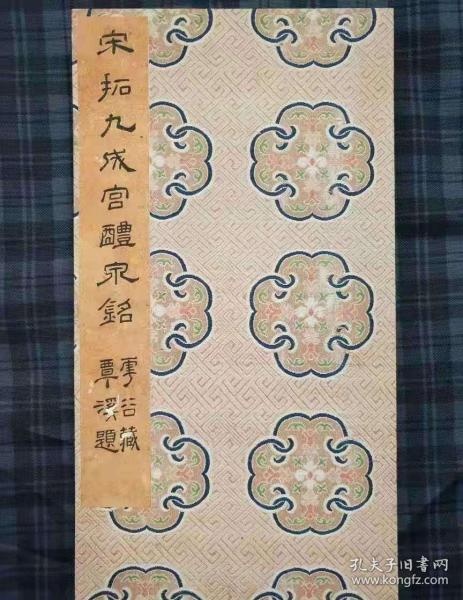 宋拓九成宫醴泉銘
雲谷藏
覃溪題
孔夫子旧书网
www.kongfz.com